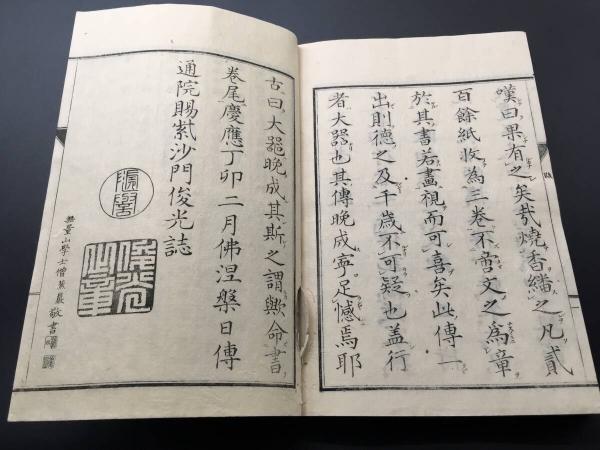 嘆曰果有之矣哉燒香繙之凡貳
百餘紙收為三卷不啻文之為章
於其書若畫視而可喜矣此傳一
出則德之及千歳不可疑也盖行
者大器也其傳晚成寧足憾焉耶
古曰大器晚成其斯之謂歟命書
卷尾慶應丁卯二月佛涅槃日傳
通院賜紫沙門俊光誌
無量山學士僧薰晨敬書